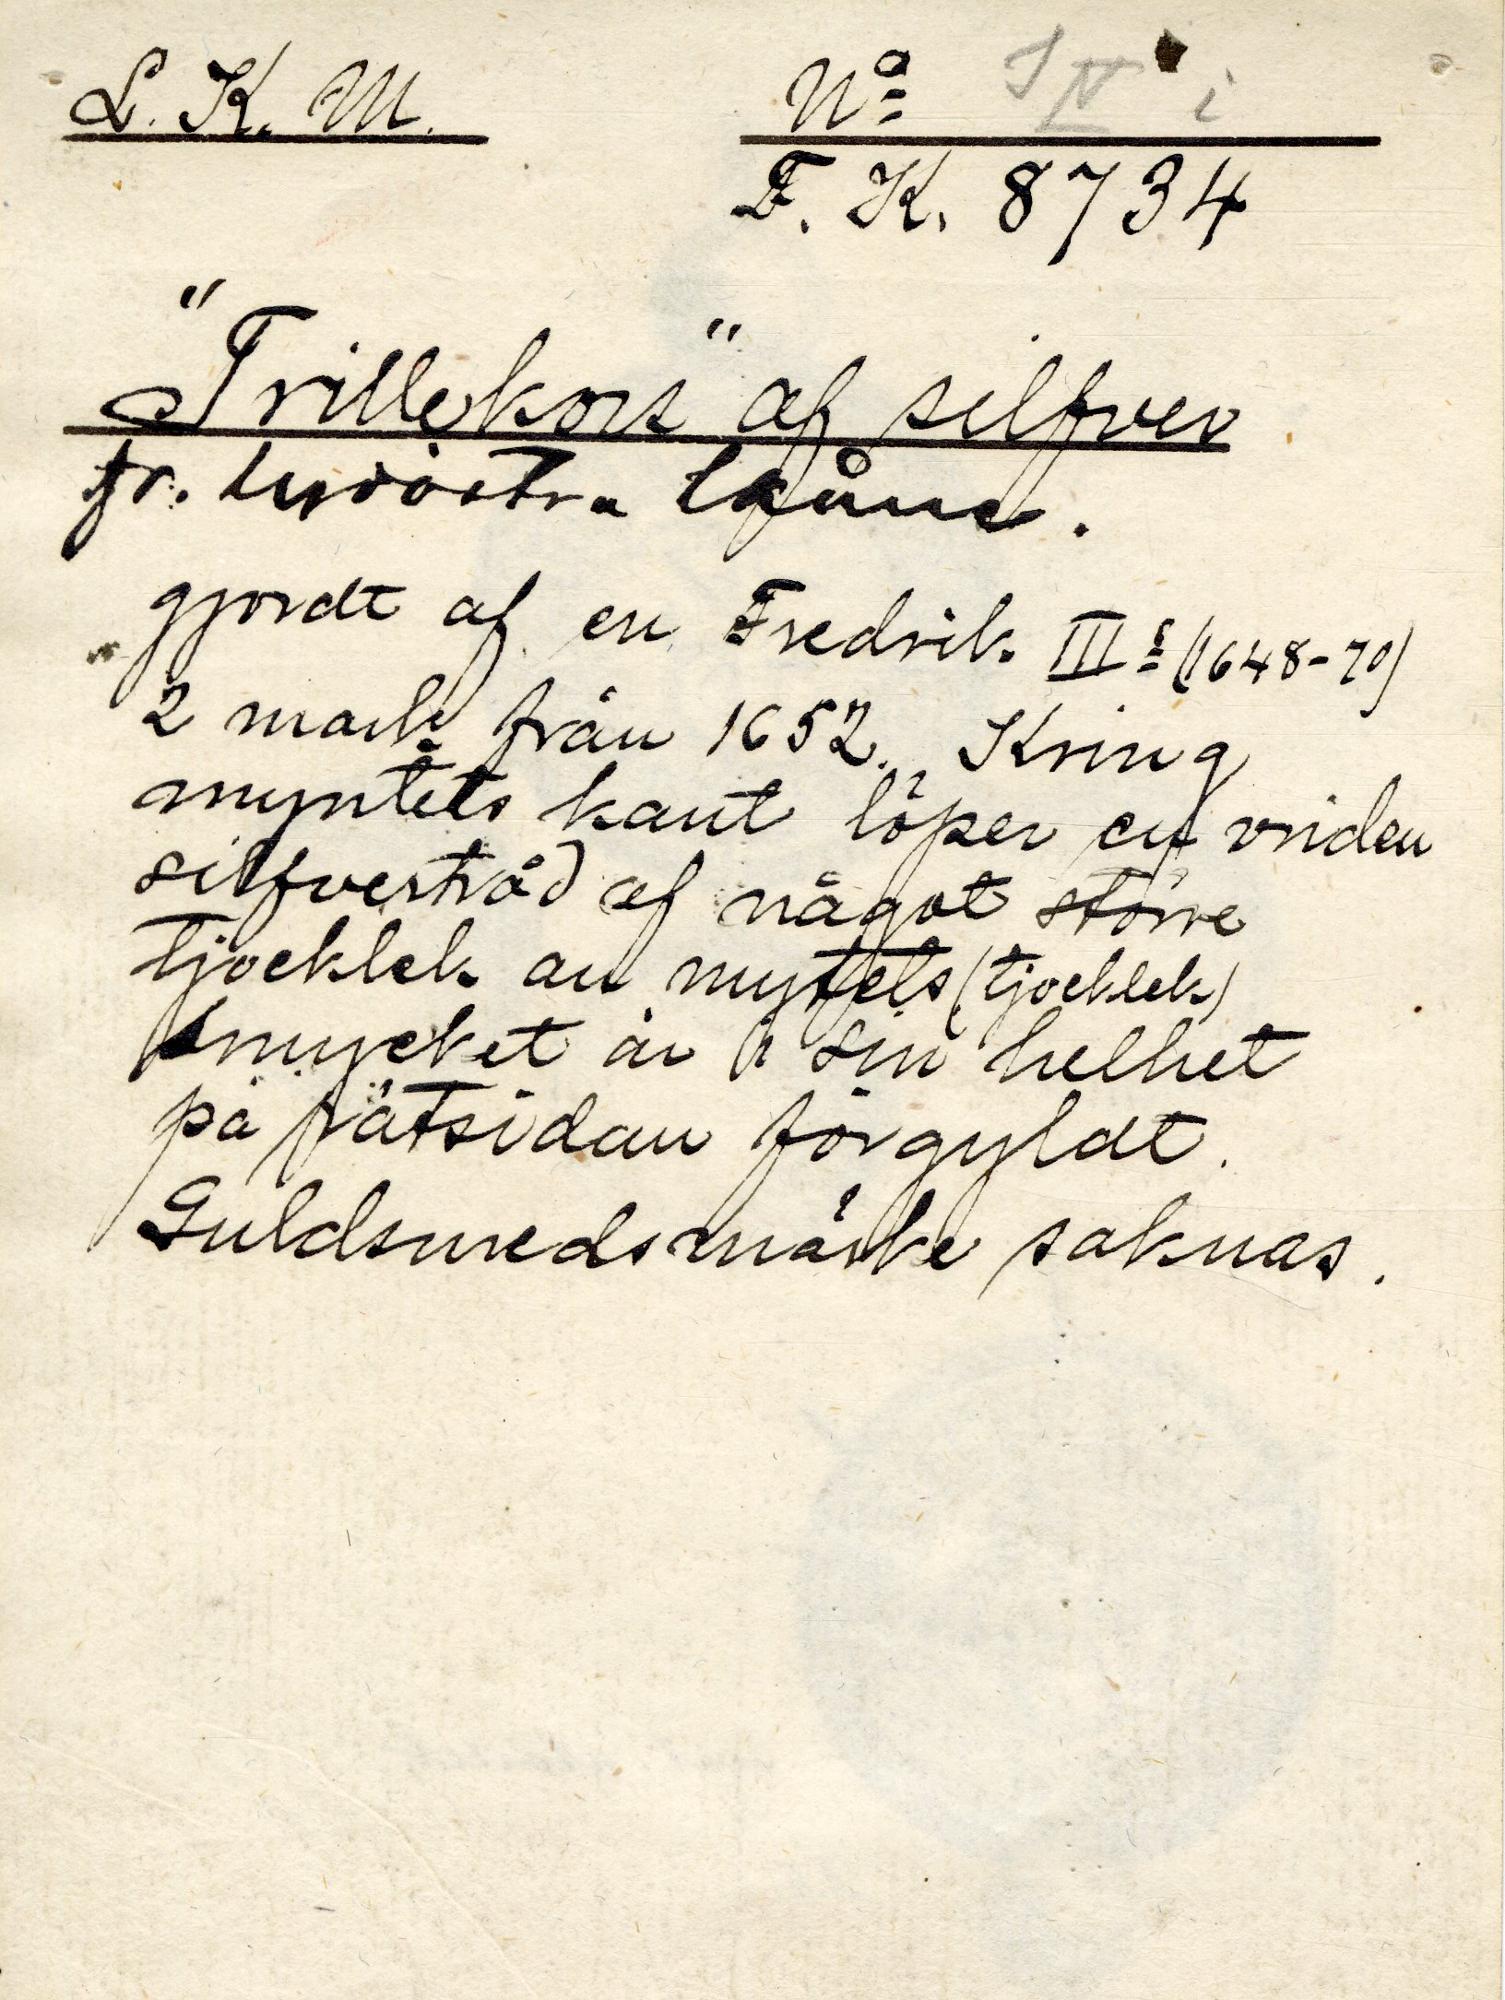 L. K. M.
No
F. K. 8734
"Trillekors" af silfver
fr. sydöstra Skåne.
gjordt af en Fredrik IIIs (1648-70)
2 mark från 1652. Kring
myntets kant löper en vriden
silfvertråd af något större
tjocklek än mytets (tjocklek)
Smycket är i sin helhet
på rätsidan förgyldt.
Guldsmedsmärke saknas.